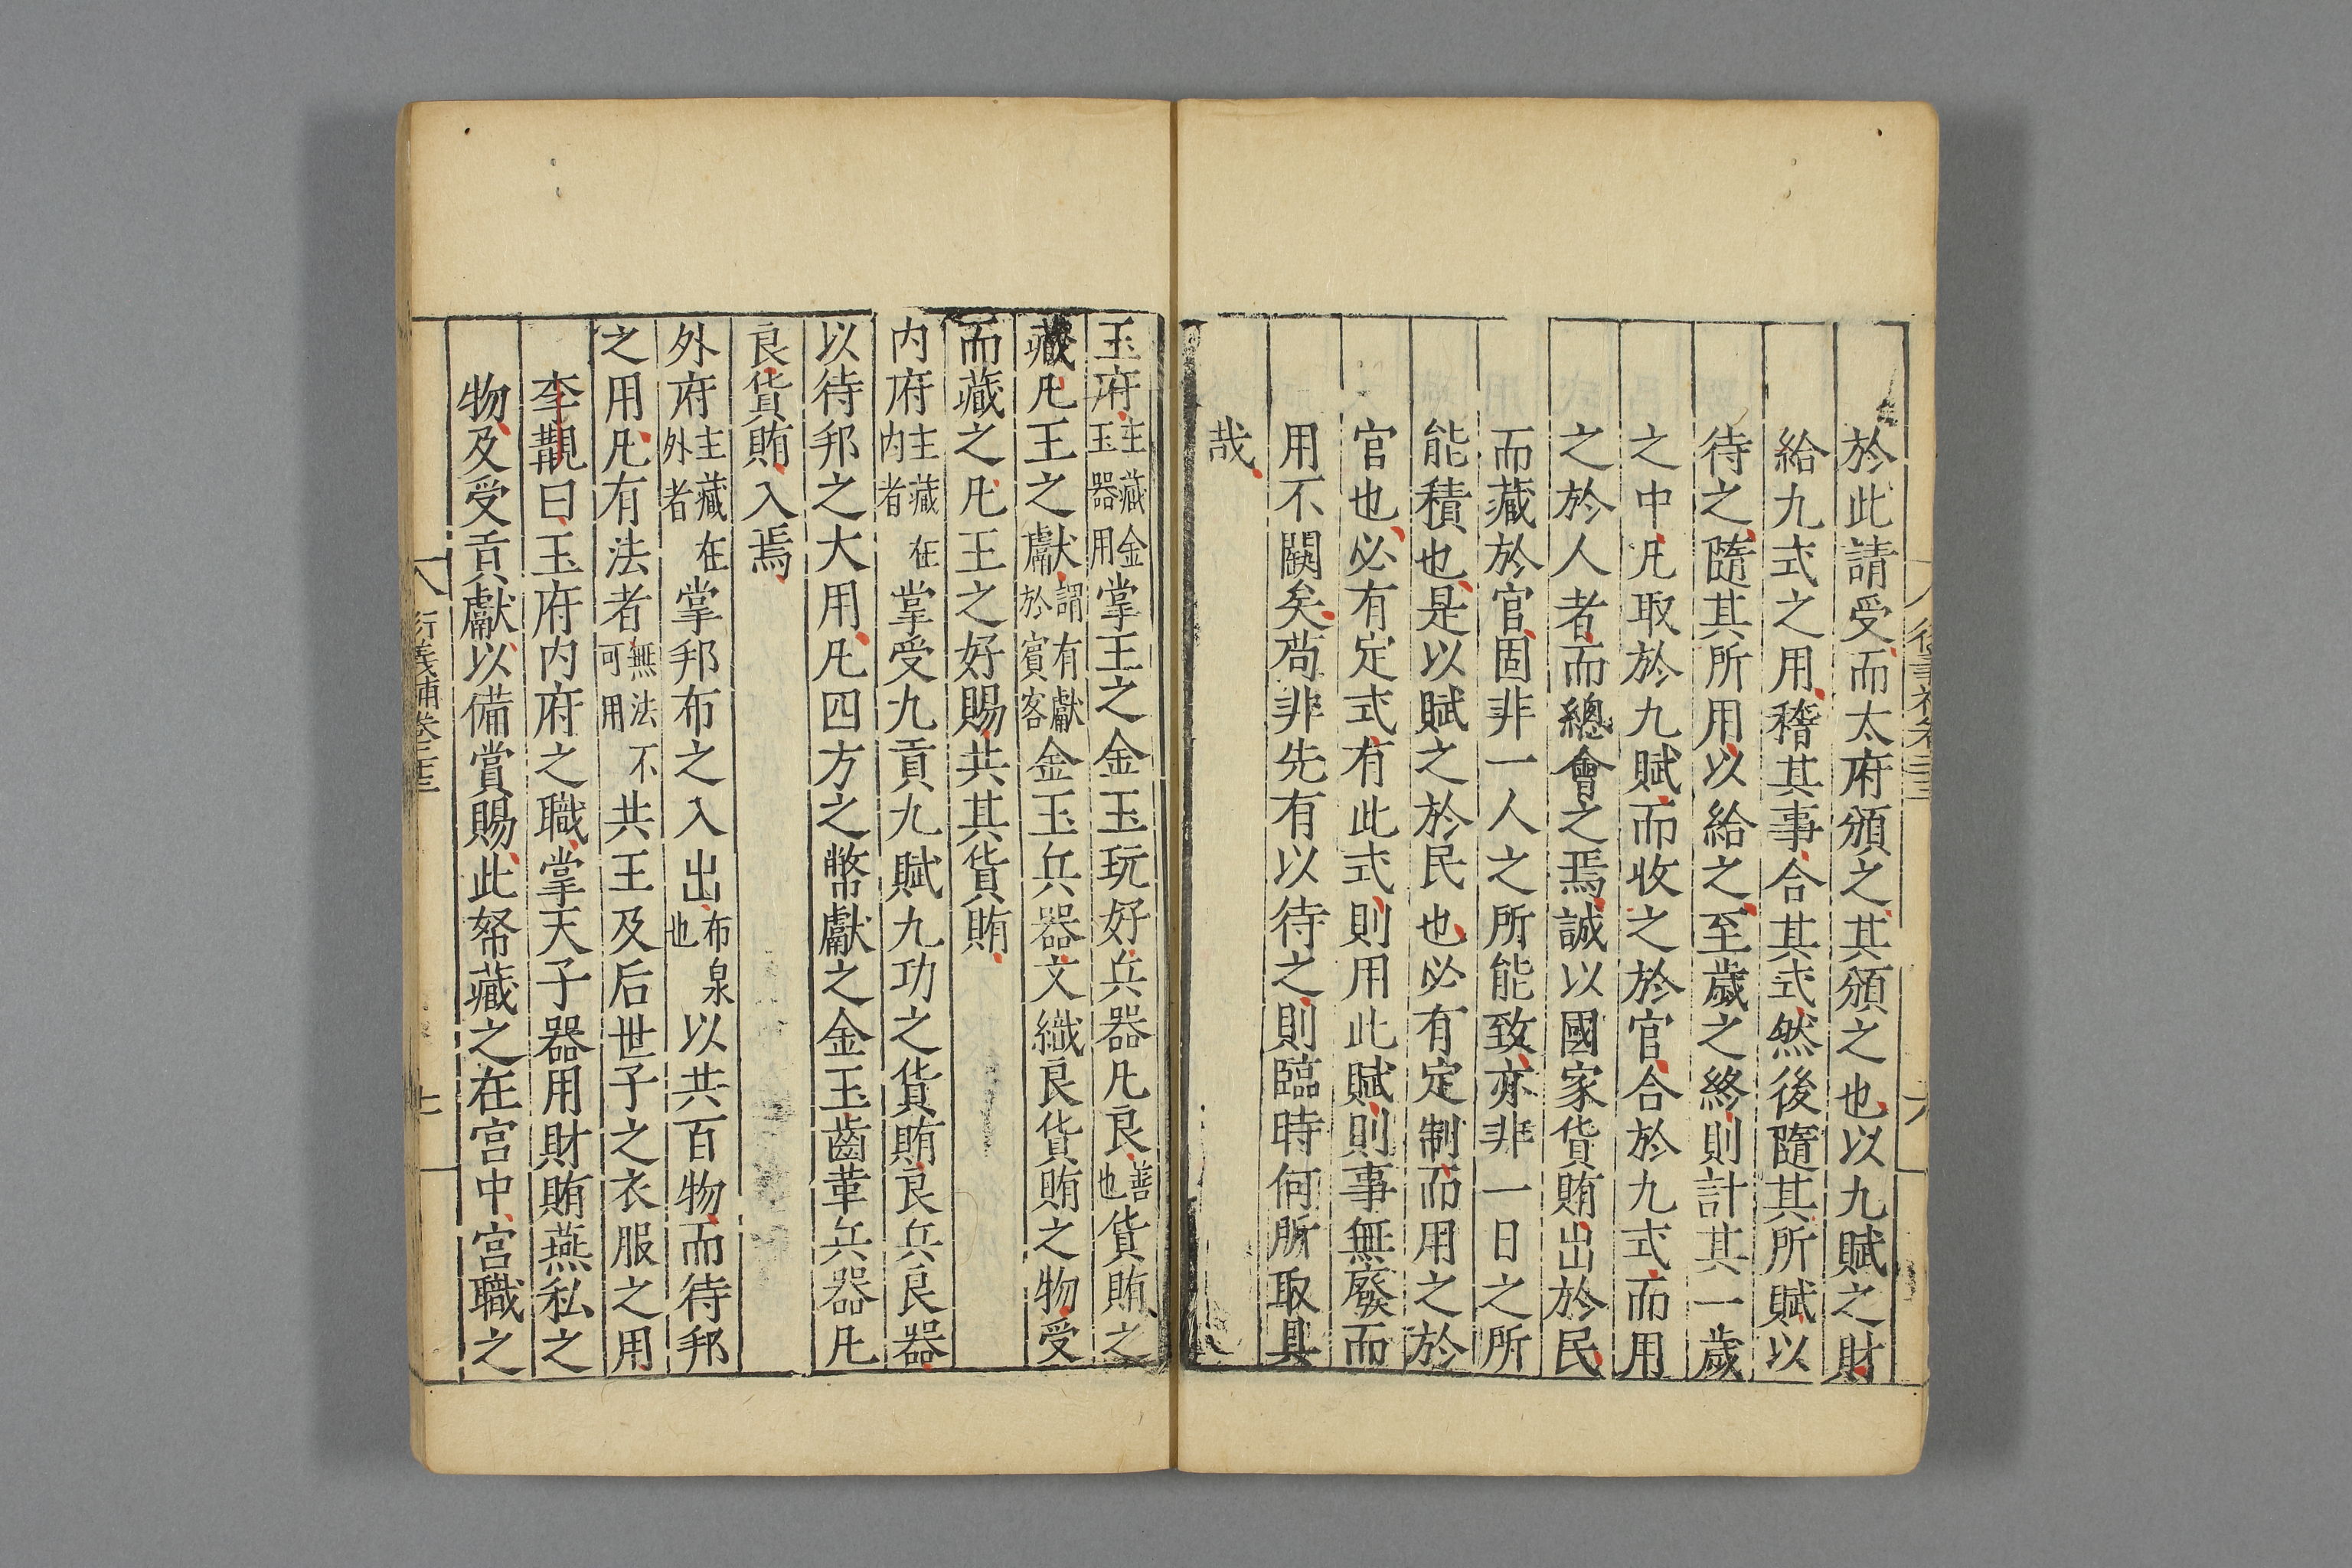 於此請受而太府頒之其頒之也以九賦之財
給九式之用稽其事合其式然後隨其所賦以
待之隨其所用以給之至歲之終則計其一歲
之中凡取於九賦而收之於官合於九式而用
之於人者而總會之焉誠以國家貨賄出於民
而藏於官固非一人之所能致亦非一日之所
能積也是以賦之於民也必有定制而用之於
官也必有定式有此式則用此賦則事無廢而
用不闕矣苟非先有以待之則臨時何所取具
哉
玉府主藏金玉器用掌王之金玉玩好兵器凡良善也貨賄之
藏凡王之獻謂有獻於賓客金玉兵器文織良貨賄之物受
而藏之凡王之好賜共其貨賄
內府主藏在內者掌受九貢九賦九功之貨賄良兵良器
以待邦之大用凡四方之幣獻之金玉齒革兵器凡
良貨賄入焉
外府主藏在外者掌邦布之入出布泉也以共百物而待邦
之用凡有法者無法不可用共王及后世子之衣服之用
李覯曰玉府內府之職掌天子器用財賄燕私之
物及受貢獻以備賞賜此帑藏之在宮中宮職之
衍義補卷二十三
七